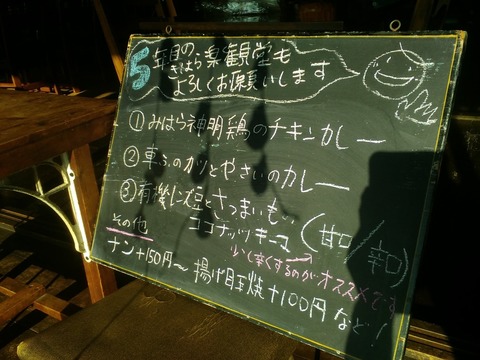 5年目の
きはらー湯観堂も
よろしくお願いします
①みはら神明鶏のチキンカレー
②車ふのカツとやさいのカレー
③有機仁大豆とさつまいも
ココナッツキーマ
(甘口/辛口)
少し辛くするのがオススメです
その他
ナン+150円〜揚げ目玉焼+100円など!